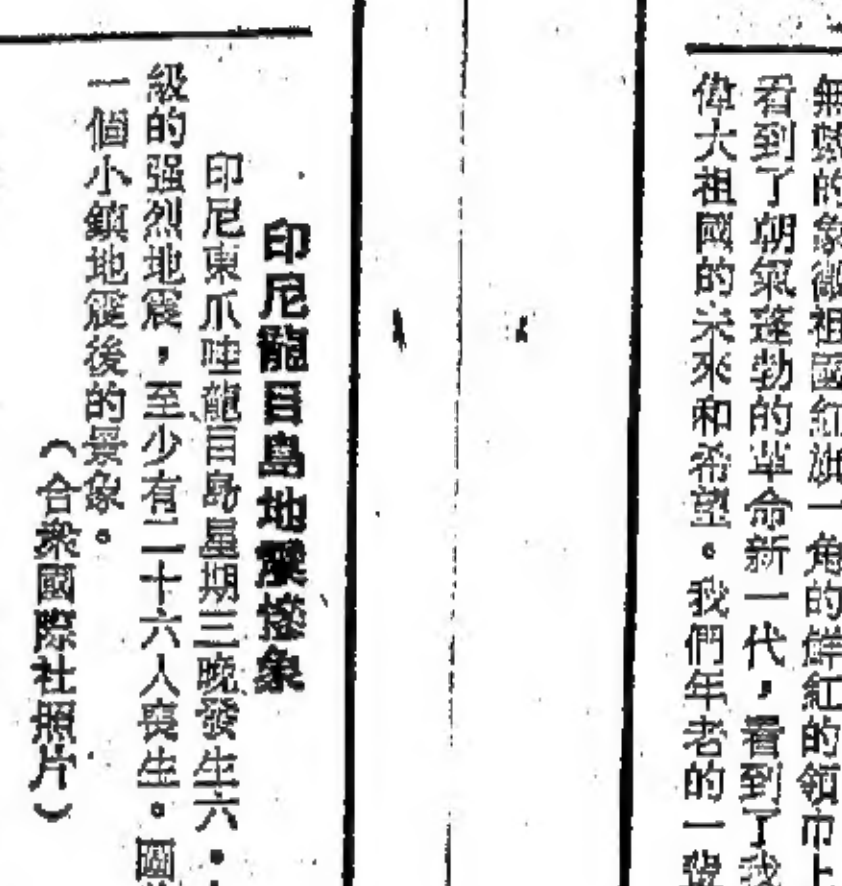 無數的象徵祖國紅旗一角的鮮紅的領巾上
看到了朝氣蓬勃的革命新一代，看到了我
偉大祖國的未來和希望。我們年老的一輩
印尼龍目島地震慘象
印尼東爪哇龍目島星期三晚發生六・
級的强烈地震，至少有二十六人喪生。圖
一個小鎮地震後的景象。
（合衆國際社照片）